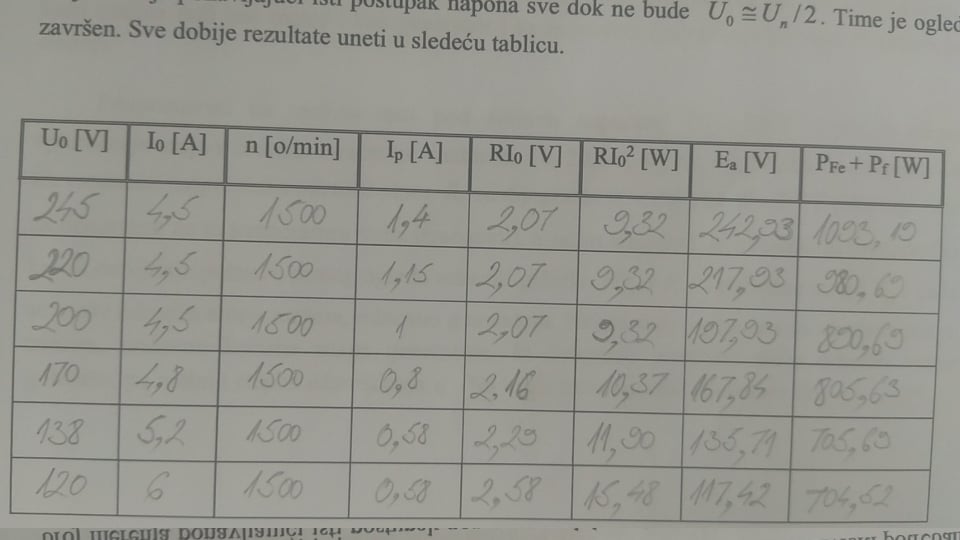 isti postupak napona sve dok ne bude U₀ ≅ Uₙ/2. Time je ogled
završen. Sve dobije rezultate uneti u sledeću tablicu.
U₀ [V] I₀ [A] n [o/min] Iₚ [A] RI₀ [V] RI₀² [W] Eₐ [V] P_Fe + P_f [W]
245 4,5 1500 1,4 2,07 9,32 242,93 1093,19
220 4,5 1500 1,15 2,07 9,32 217,93 980,69
200 4,5 1500 1 2,07 9,32 197,93 890,69
170 4,8 1500 0,8 2,16 10,37 167,84 805,63
138 5,2 1500 0,58 2,29 11,90 135,71 705,69
120 6 1500 0,58 2,58 15,48 117,42 704,52